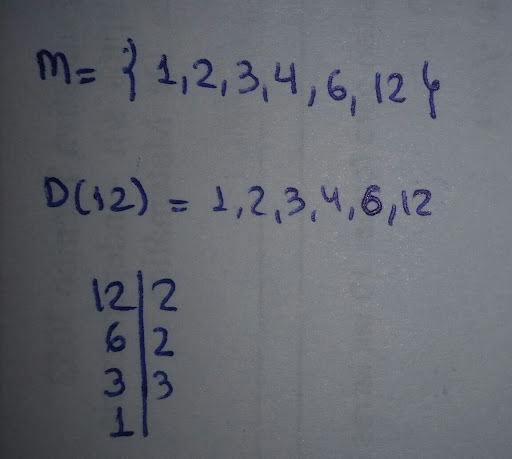 M = { 1, 2, 3, 4, 6, 12 }
D(12) = 1, 2, 3, 4, 6, 12
12 | 2
6 | 2
3 | 3
1 |